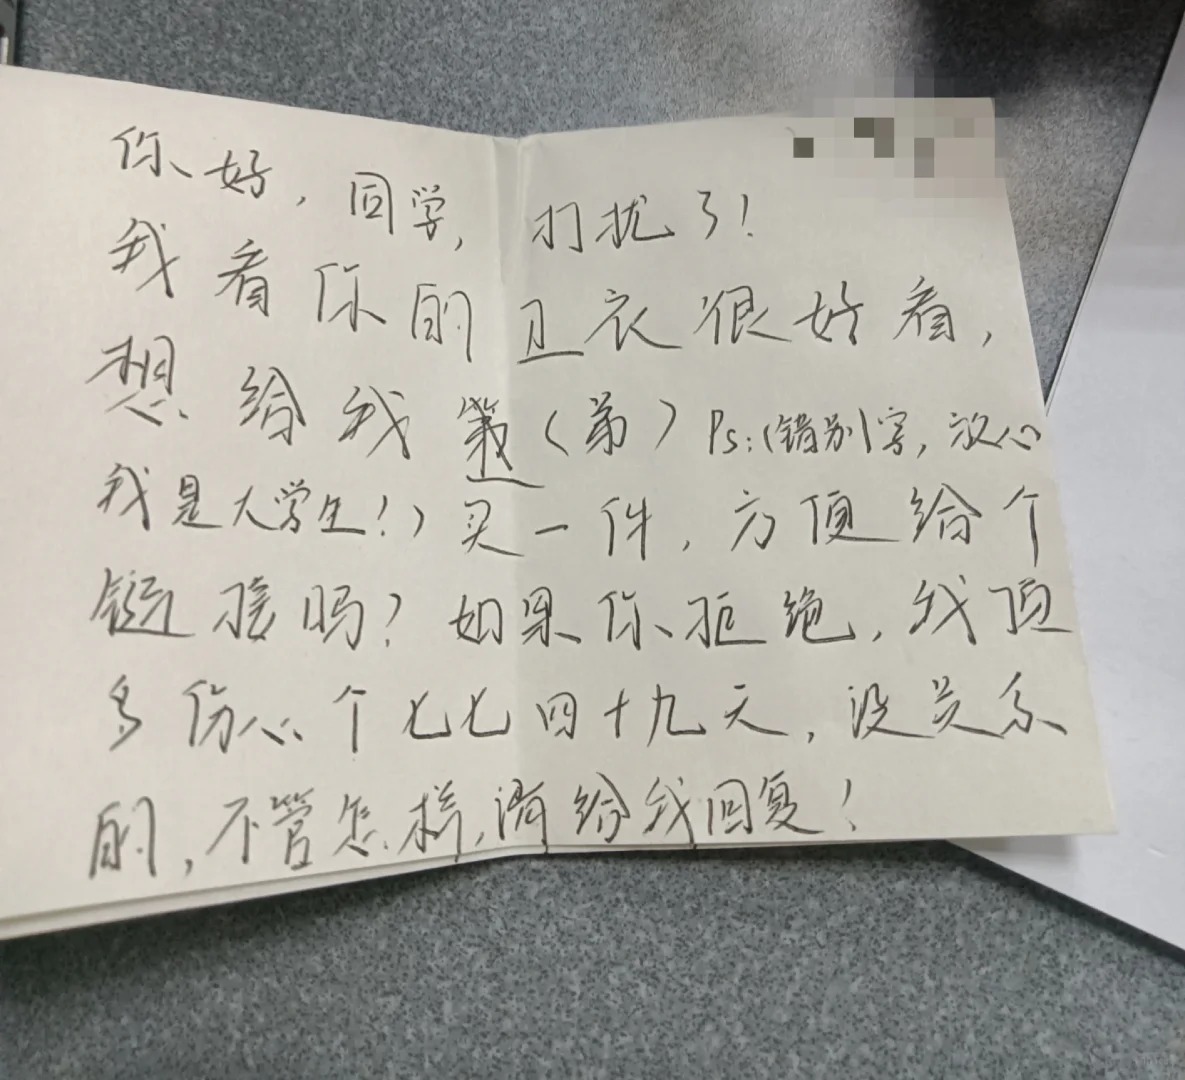 你好，同学，打扰了！
我看你的卫衣很好看，
想给我（弟）Ps:（错别字，放心
我是大学生！）买一件，方便给个
链接吗？如果你拒绝，我顶
多伤心个七七四十九天，没关系
的，不管怎样，请给我回复！